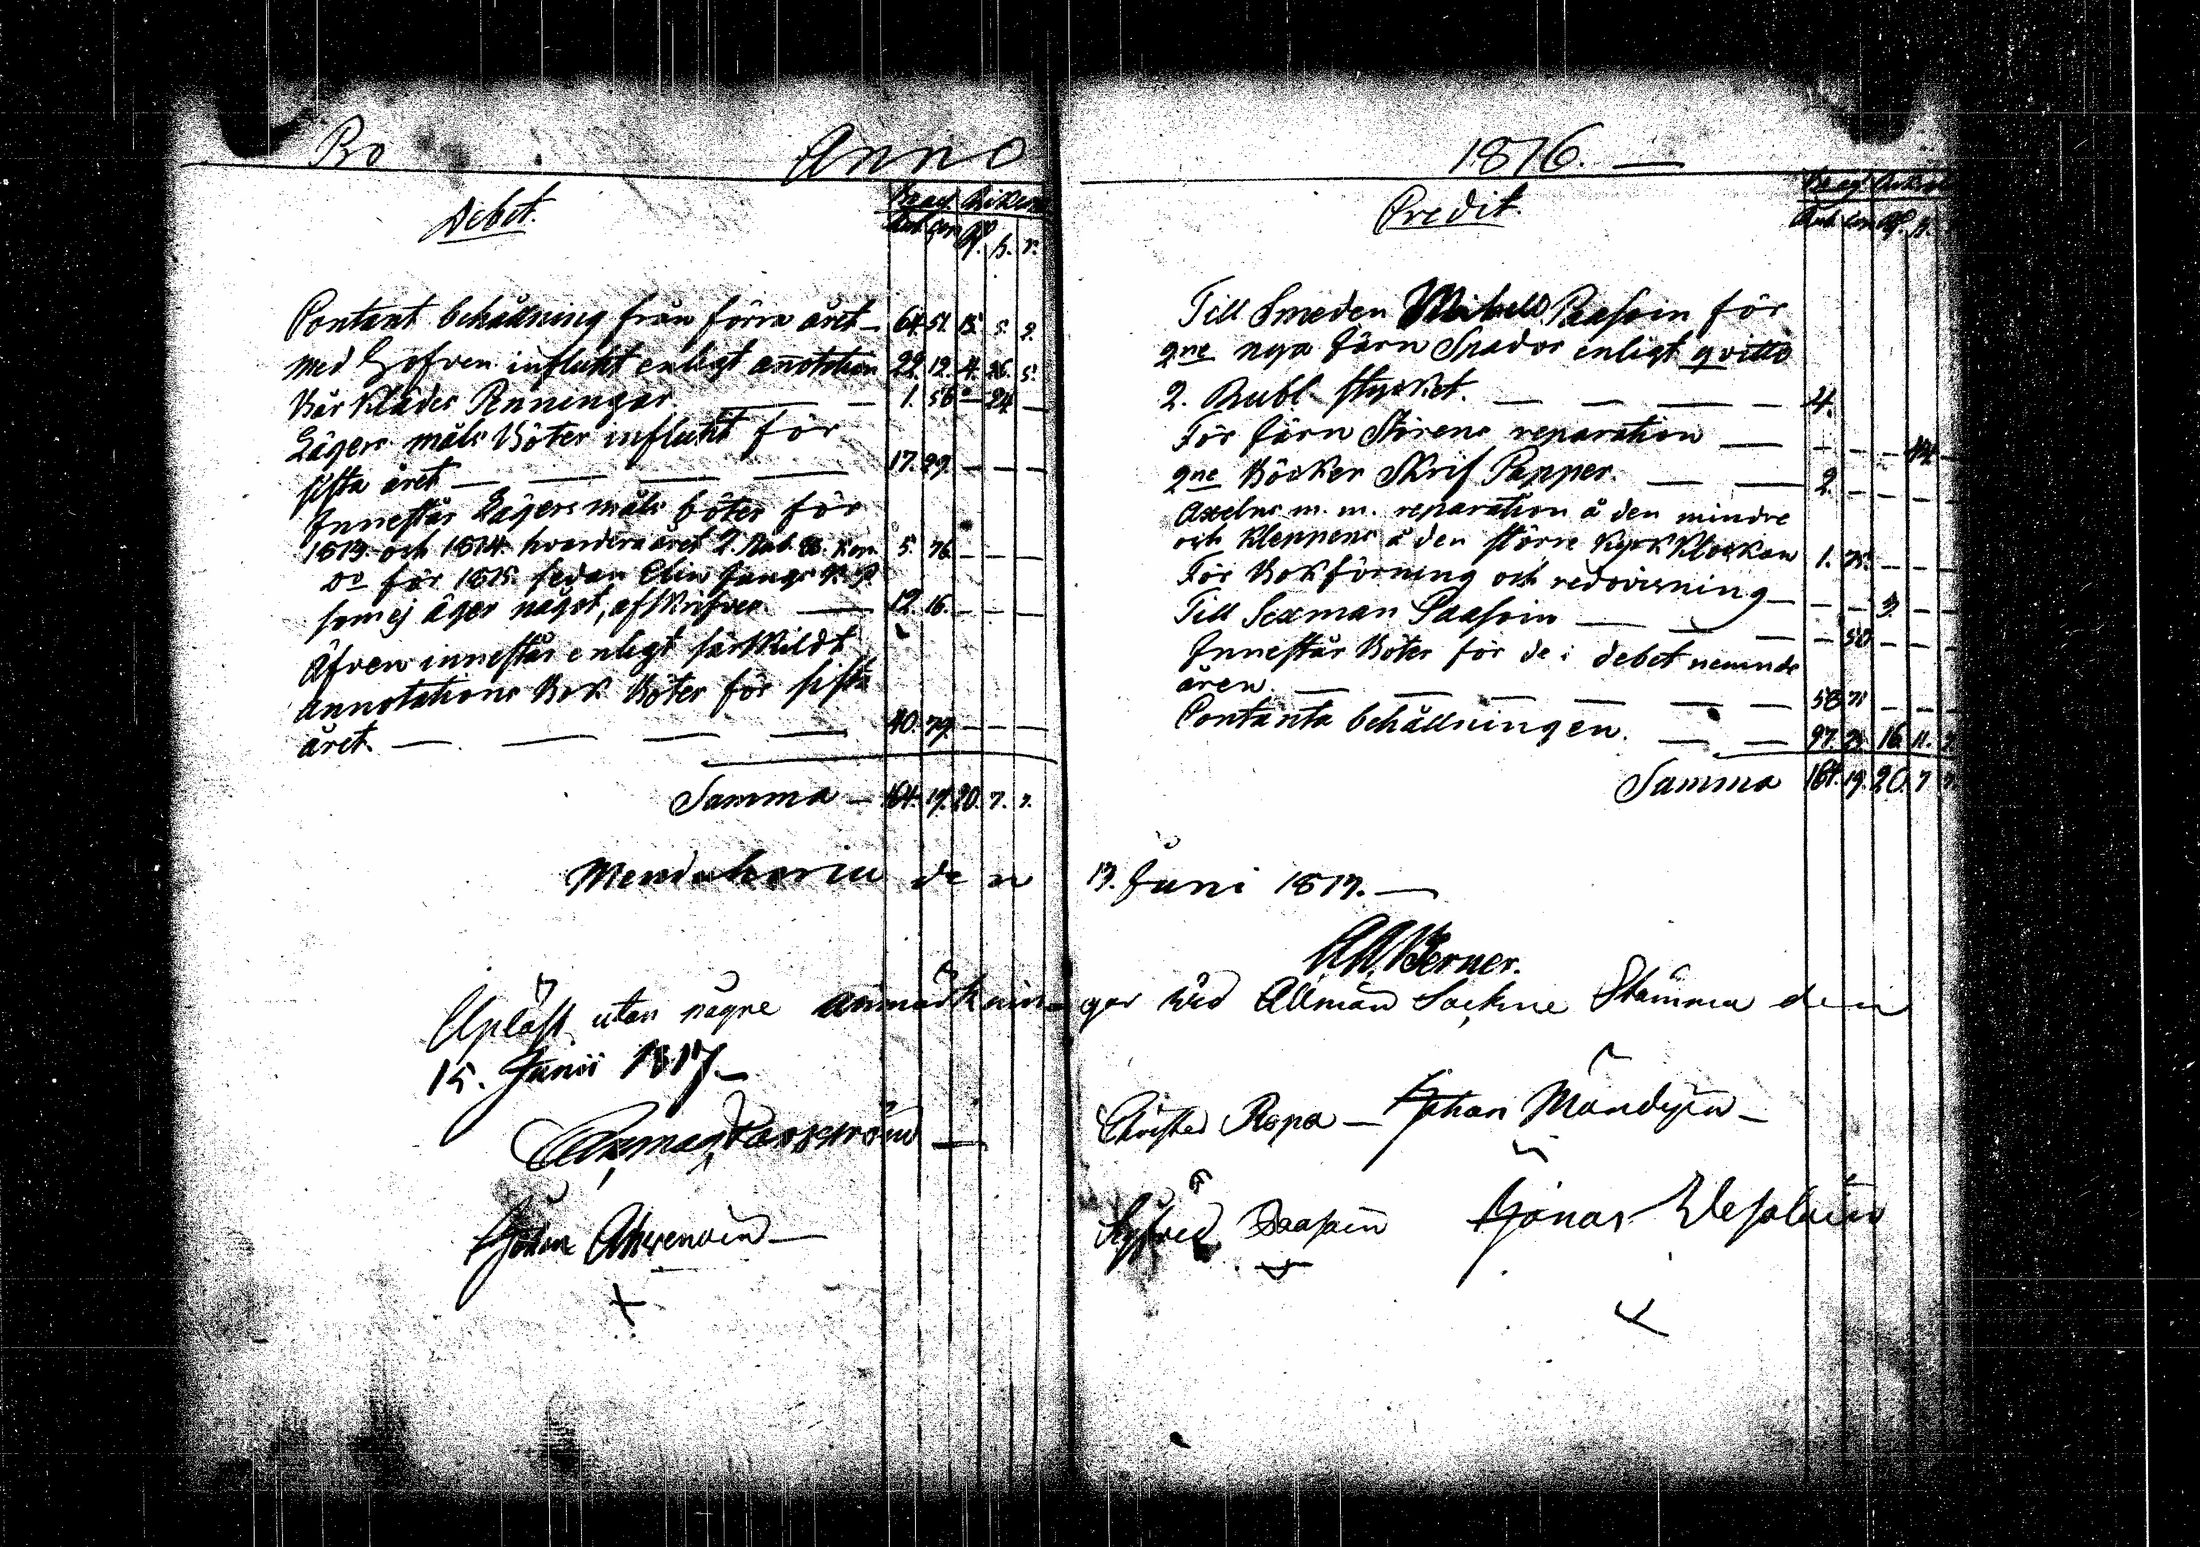 Anno 1816.
Debet.
Contant behållning från förra året — 64. 51. 15. 5. 2.
Med Hofven influtit enligt annotation 22. 12. 4. 26. 5.
Bår Klädes Penningar — 1. 56 — 24 —
Lägers måls Böter influtit för
sista året — 17. 29. — — —
Innestår Lägersmåls böter för
1813 och 1814 hvardera året 2. Rub. 88. Kop. 5. 76. — — —
Do för 1815. sedan Elin
som ej äger något, afskrifves — 12. 16. — — —
Äfven innestår enligt särskildt
annotations Bok Böter för sista
året — 40. 79. — — —
Summa — 164. 19. 20. 7. 7.
Credit.
Till Smeden Paasoin för
2ne nya Järn Spador enligt qvitto
2. Rubl. stycket. — 4.
För Järn Störens reparation — — — — 44 —
2ne Böcker Skrif Papper. — 2. — — — —
Axelns m. m. reparation å den mindre
och Kleppens å den större Kyrk Klockan 1. 75. — — —
För Bokförning och redovisning — — — 3. — —
Till Sexman Paasoin — — 50 — — —
Innestår Böter för de i debet nemnde
åren. — 58 71 — — —
Contanta behållningen. — 97. 23. 16. 11. 7.
Summa 164. 19. 20. 7 7.
den 13. Juni 1817. —
Berner.
Upläst utan någre anmärkningar wid Allmän Sockne Stämma den
15. Junii 1817. —
Christer Repo — Johan Mändynen —
Johan Ahvenain —
Sigfred Paasoin Jonas